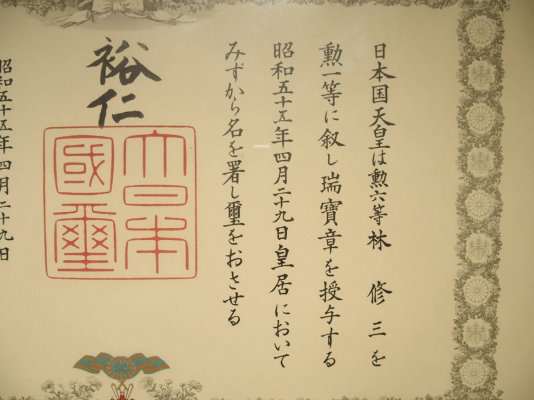 日本国天皇は勲六等林　修三を
勲一等に叙し瑞寶章を授与する
昭和五十五年四月二十九日皇居において
みずから名を署し璽をおさせる
裕仁
大日本
國璽
昭和五十五年四月二十九日